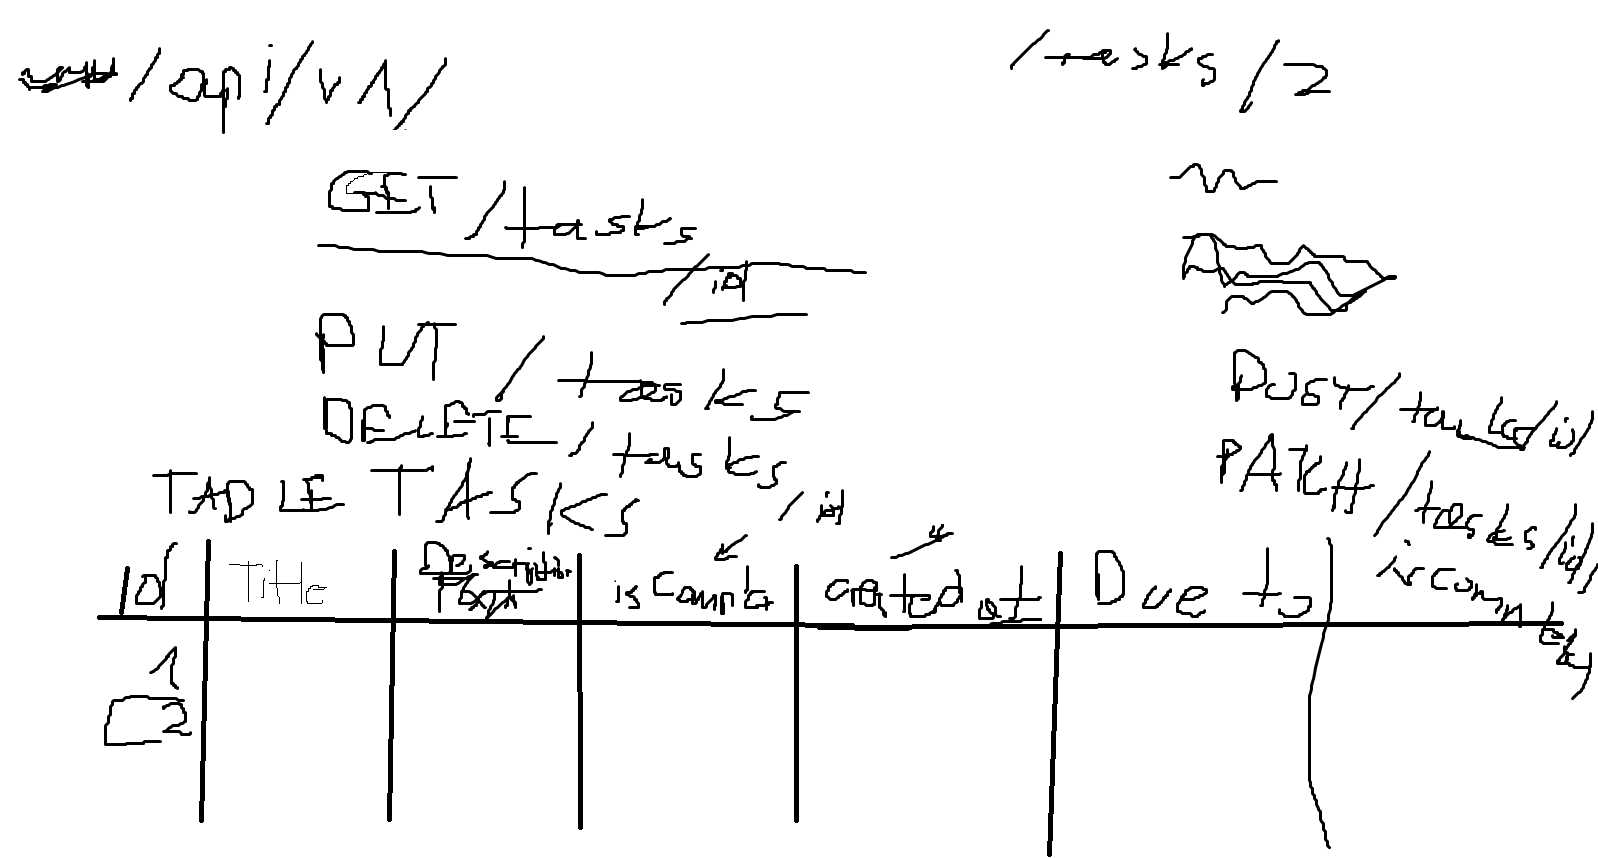 /api/v1/
/tasks/2
GET /tasks
/id
PUT /tasks
DELETE /tasks
/id
POST/tasks/id
PATCH/tasks/id/
TABLE TASKS
id Title Description is Complete created at Due to
1
2